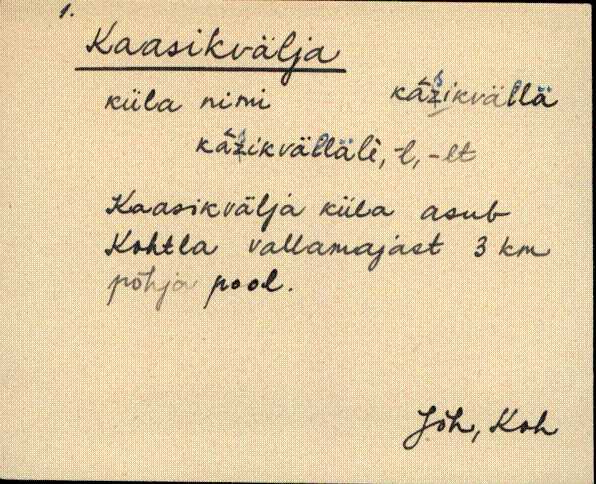 1.
Kaasikvälja
küla nimi kàzikvällä
kàzikvälläle, -l, -lt
Kaasikvälja küla asub
Kohtla vallamajast 3 km
põhja pool.
Jõh, Koh